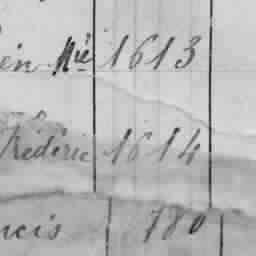 en Mie 1613
Frédéric 1614
ncis 780